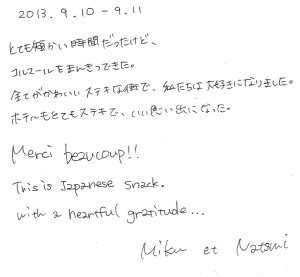 2013. 9. 10 - 9. 11
とても短かい時間だったけど、
コルマールをまんきつできた。
全てがかわいいステキな街で、私たちは大好きになりました。
ホテルもとてもステキで、いい思い出になった。
Merci beaucoup!!
This is Japanese snack.
with a heartful gratitude...
Miku et Natsumi